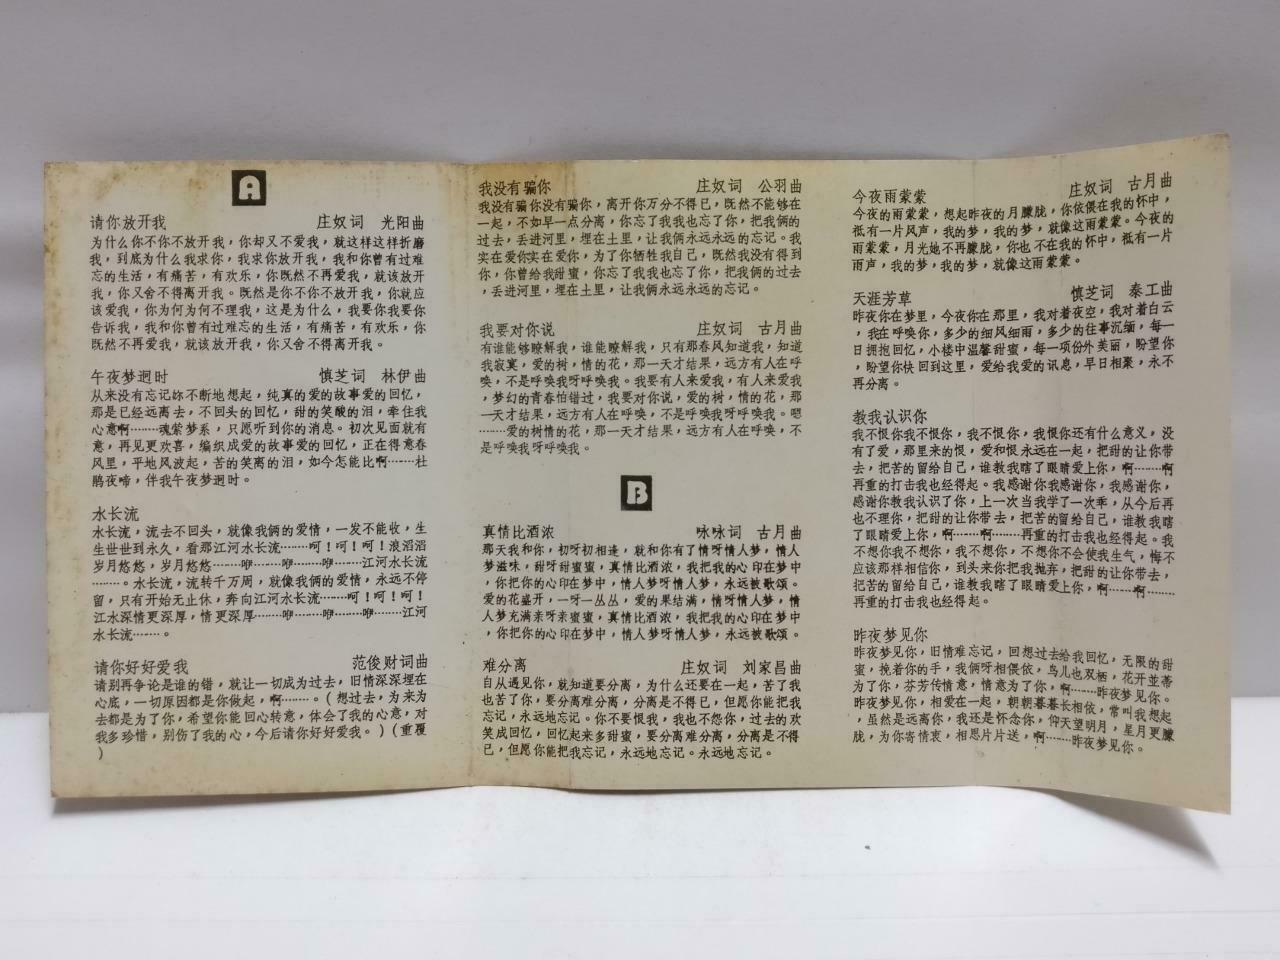 A
请你放开我 庄奴词 光阳曲
为什么你不你不放开我，你却又不爱我，就这样这样折磨
我，到底为什么我求你，我求你放开我，我和你曾有过难
忘的生活，有痛苦，有欢乐，你既然不再爱我，就该放开
我，你又舍不得离开我。既然是你不你不放开我，你就应
该爱我，你为何为何不理我，这是为什么，我要你我要你
告诉我，我和你曾有过难忘的生活，有痛苦，有欢乐，你
既然不再爱我，就该放开我，你又舍不得离开我。
午夜梦迥时 慎芝词 林伊曲
从来没有忘记妳不断地想起，纯真的爱的故事爱的回忆，
那是已经远离去，不回头的回忆，甜的笑酸的泪，牵住我
心意啊……魂萦梦系，只愿听到你的消息。初次见面就有
意，再见更欢喜，编织成爱的故事爱的回忆，正在得意春
风里，平地风波起，苦的笑离的泪，如今怎能比啊……杜
鹃夜啼，伴我午夜梦迥时。
水长流
水长流，流去不回头，就像我俩的爱情，一发不能收，生
生世世到永久，看那江河水长流……呵！呵！呵！浪滔滔
岁月悠悠，岁月悠悠……咿……咿……咿……江河水长流
……。水长流，流转千万周，就像我俩的爱情，永远不停
留，只有开始无止休，奔向江河水长流……呵！呵！呵！
江水深情更深厚，情更深厚……咿……咿……咿……江河
水长流……。
请你好好爱我 范俊财词曲
请别再争论是谁的错，就让一切成为过去，旧情深深埋在
心底，一切原因都是你做起，啊……。（想过去，为来为
去都是为了你，希望你能回心转意，体会了我的心意，对
我多珍惜，别伤了我的心，今后请你好好爱我。）（重覆
）
我没有骗你 庄奴词 公羽曲
我没有骗你没有骗你，离开你万分不得已，既然不能够在
一起，不如早一点分离，你忘了我我也忘了你，把我俩的
过去，丢进河里，埋在土里，让我俩永远永远的忘记。我
实在爱你实在爱你，为了你牺牲我自己，既然我没有得到
你，你曾给我甜蜜，你忘了我我也忘了你，把我俩的过去
，丢进河里，埋在土里，让我俩永远永远的忘记。
我要对你说 庄奴词 古月曲
有谁能够瞭解我，谁能瞭解我，只有那春风知道我，知道
我寂寞，爱的树，情的花，那一天才结果，远方有人在呼
唤，不是呼唤我呀呼唤我。我要有人来爱我，有人来爱我
，梦幻的青春怕错过，我要对你说，爱的树，情的花，那
一天才结果，远方有人在呼唤，不是呼唤我呀呼唤我。嗯
……爱的树情的花，那一天才结果，远方有人在呼唤，不
是呼唤我呀呼唤我。
B
真情比酒浓 咏咏词 古月曲
那天我和你，初呀初相逢，就和你有了情呀情人梦，情人
梦滋味，甜呀甜蜜蜜，真情比酒浓，我把我的心印在梦中
，你把你的心印在梦中，情人梦呀情人梦，永远被歌颂。
爱的花盛开，一呀一丛丛，爱的果结满，情呀情人梦，情
人梦充满亲呀亲蜜蜜，真情比酒浓，我把我的心印在梦中
，你把你的心印在梦中，情人梦呀情人梦，永远被歌颂。
难分离 庄奴词 刘家昌曲
自从遇见你，就知道要分离，为什么还要在一起，苦了我
也苦了你，要分离难分离，分离是不得已，但愿你能把我
忘记，永远地忘记。你不要恨我，我也不怨你，过去的欢
笑成回忆，回忆起来多甜蜜，要分离难分离，分离是不得
已，但愿你能把我忘记，永远地忘记。永远地忘记。
今夜雨蒙蒙 庄奴词 古月曲
今夜的雨蒙蒙，想起昨夜的月朦胧，你依偎在我的怀中，
祗有一片风声，我的梦，我的梦，就像这雨蒙蒙。今夜的
雨蒙蒙，月光她不再朦胧，你也不在我的怀中，祗有一片
雨声，我的梦，我的梦，就像这雨蒙蒙。
天涯芳草 慎芝词 秦工曲
昨夜你在梦里，今夜你在那里，我对着夜空，我对着白云
，我在呼唤你，多少的细风细雨，多少的往事沉缅，每一
日拥抱回忆，小楼中温馨甜蜜，每一项份外美丽，盼望你
，盼望你快回到这里，爱给我爱的讯息，早日相聚，永不
再分离。
教我认识你
我不恨你我不恨你，我不恨你，我恨你还有什么意义，没
有了爱，那里来的恨，爱和恨永远在一起，把甜的让你带
去，把苦的留给自己，谁教我瞎了眼睛爱上你，啊……啊
再重的打击我也经得起。我感谢你我感谢你，我感谢你，
感谢你教我认识了你，上一次当我学了一次乖，从今后再
也不理你，把甜的让你带去，把苦的留给自己，谁教我瞎
了眼睛爱上你，啊……啊……再重的打击我也经得起。我
不想你我不想你，我不想你，不想你不会使我生气，悔不
应该那样相信你，到头来你把我抛弃，把甜的让你带去，
把苦的留给自己，谁教我瞎了眼睛爱上你，啊……啊……
再重的打击我也经得起。
昨夜梦见你
昨夜梦见你，旧情难忘记，回想过去给我回忆，无限的甜
蜜，挽着你的手，我俩呀相偎依，鸟儿也双栖，花开並蒂
为了你，芬芳传情意，情意为了你，啊……昨夜梦见你。
昨夜梦见你，相爱在一起，朝朝暮暮长相依，常叫我想起
，虽然是远离你，我还是怀念你，仰天望明月，星月更朦
胧，为你寄情衷，相思片片送，啊……昨夜梦见你。